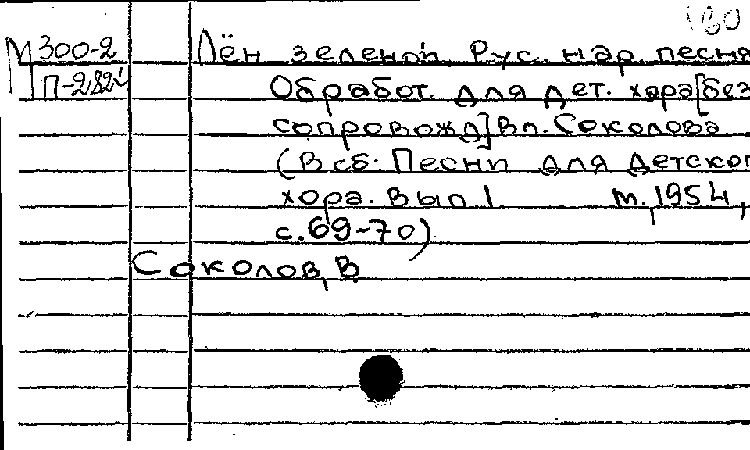 160
М 300-2
П-282
Лён зеленой. Рус. нар. песня
Обработ. для дет. хора [без
сопровожд] Вл. Соколова
(В сб. Песни для детског
хора. Вып 1 М., 1954,
с. 69-70)
Соколов, В